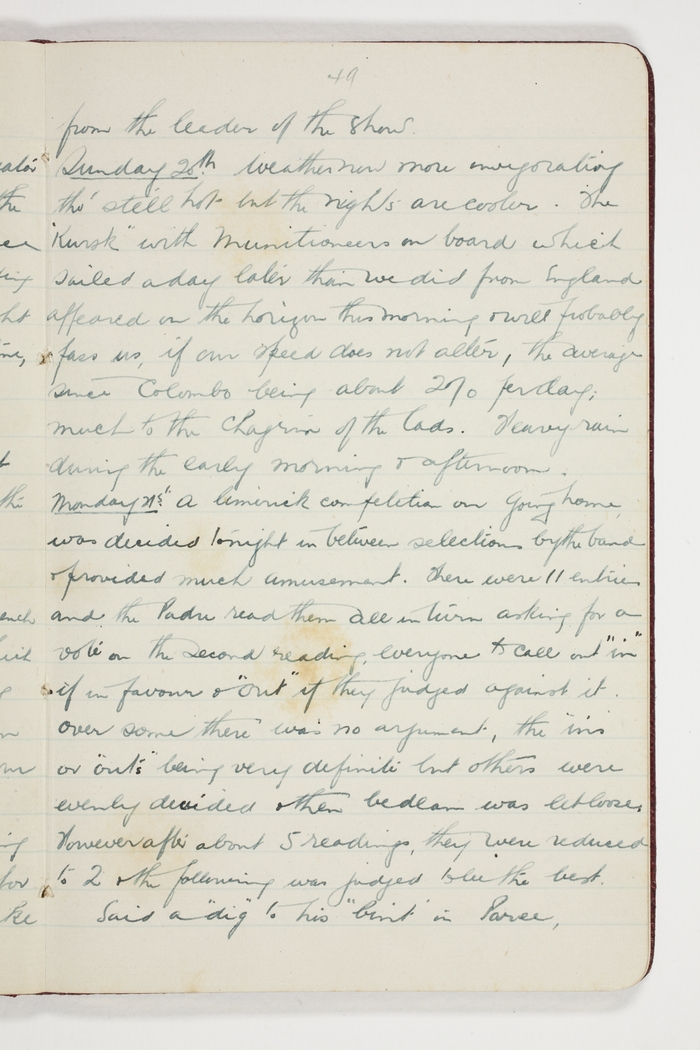 49
from the leader of the show.
Sunday 20th Weather now more invigorating
tho' still hot but the nights are cooler. The
"Kursk" with Munitioneers on board which
sailed a day later than we did from England
appeared on the horizon this morning & will probably
pass us, if our speed does not alter, the average
since Colombo being about 270 per day;
much to the chagrin of the lads. Heavy rain
during the early morning & afternoon.
Monday 21st A limerick competition on Going home,
was decided tonight in between selections by the band
& provided much amusement. There were 11 entries
and the Padre read them all in turn asking for a
vote on the second reading, everyone to call out "in"
if in favour & "out" if they judged against it.
Over some there was no argument, the "ins
or "outs" being very definite but others were
evenly decided & then bedlam was let loose.
However after about 5 readings, they were reduced
to 2 & the following was judged to be the best.
Said a "dig" to his "bint" in Paree,